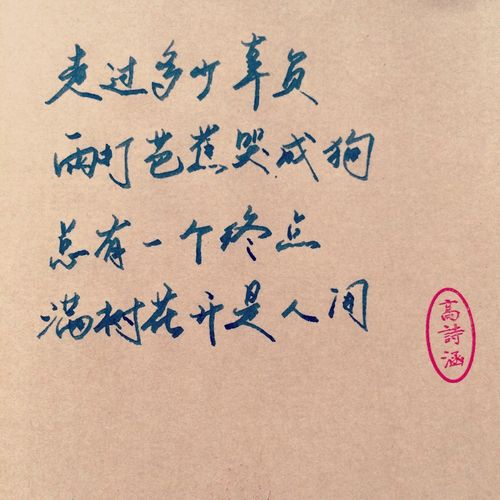 走过多少辜负
雨打芭蕉哭成狗
总有一个终点
满树花开是人间
高詩涵